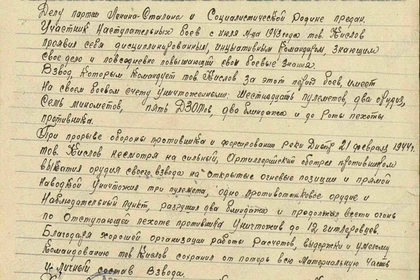 Делу партии Ленина-Сталина и Социалистической Родине предан.
Участник наступательных боев с июля м-ца 1943 года тов Кислов
проявил себя дисциплинированным, инициативным Командиром, знающим
свое дело и повседневно повышающий свои боевые знания.
Взвод, которым командует тов Кислов за этот период боев, имеет
на своем боевом счету уничтоженными: Шестнадцать пулеметов, два орудия,
Семь минометов, пять ДЗОТов, два блиндажа и до роты пехоты
противника.
При прорыве обороны противника и форсировании реки Днепр 21 февраля 1944 г.
тов Кислов несмотря на сильный, Артиллерийский обстрел противником
выкатил орудия своего взвода на открытые огневые позиции и прямой
наводкой уничтожил три пулемета, одно противотанковое орудие и
наблюдательный пункт, разрушил два блиндажа и продолжал вести огонь
по отступающей пехоте противника уничтожив до 12 гитлеровцев.
Благодаря хорошей организации работы расчетов, выдержки и умелому
командованию тов Кислов сохранил от потерь всю материальную часть
и личный состав взвода.